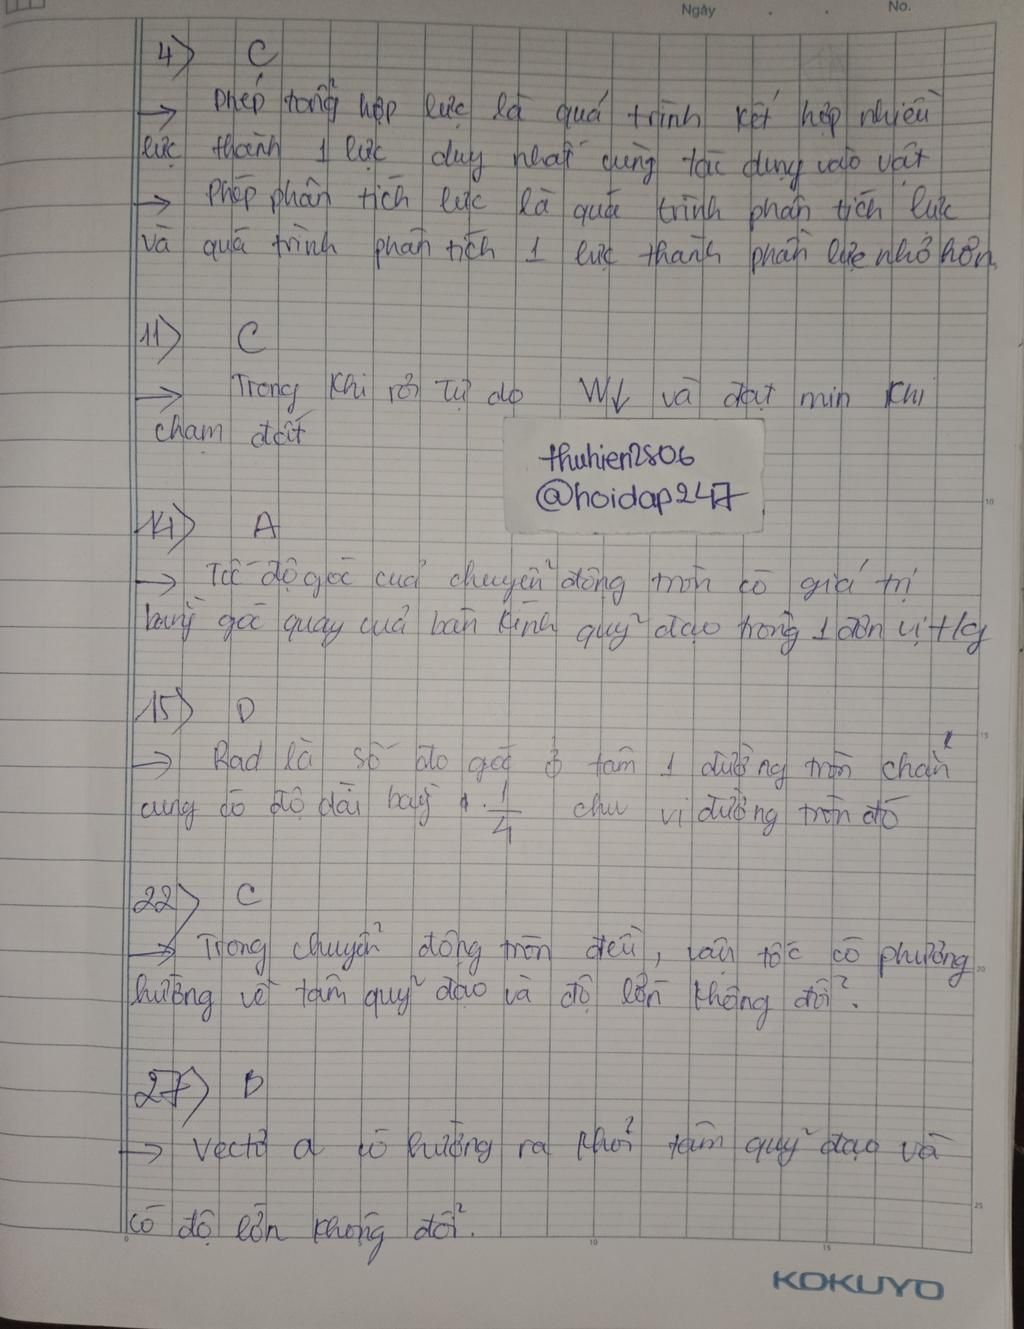 Ngày . . No.
4) C
→ Phép tổng hợp lực là quá trình kết hợp nhiều
lực thành 1 lực duy nhất cùng tác dụng vào vật
→ Phép phân tích lực là quá trình phân tích lực
và quá trình phân tích 1 lực thành phần lực nhỏ hơn.
11) C
→ Trong khi rơi tự do W↓ và đạt min khi
chạm đất
thuhien2806
@hoidap247
14) A
→ Tốc độ góc của chuyển động tròn có giá trị
bằng góc quay của bán kính quỹ đạo trong 1 đơn vị tg
15) D
→ Rad là số đo góc ở tâm 1 đường tròn chắn
cung có độ dài bằng 1/4 chu vi đường tròn đó
22) C
→ Trong chuyển động tròn đều, vận tốc có phương
hướng về tâm quỹ đạo và độ lớn không đổi.
27) D
→ Vectơ a có hướng ra khỏi tâm quỹ đạo và
có độ lớn không đổi.
5
10
15
20
25
0
10
15
KOKUYO